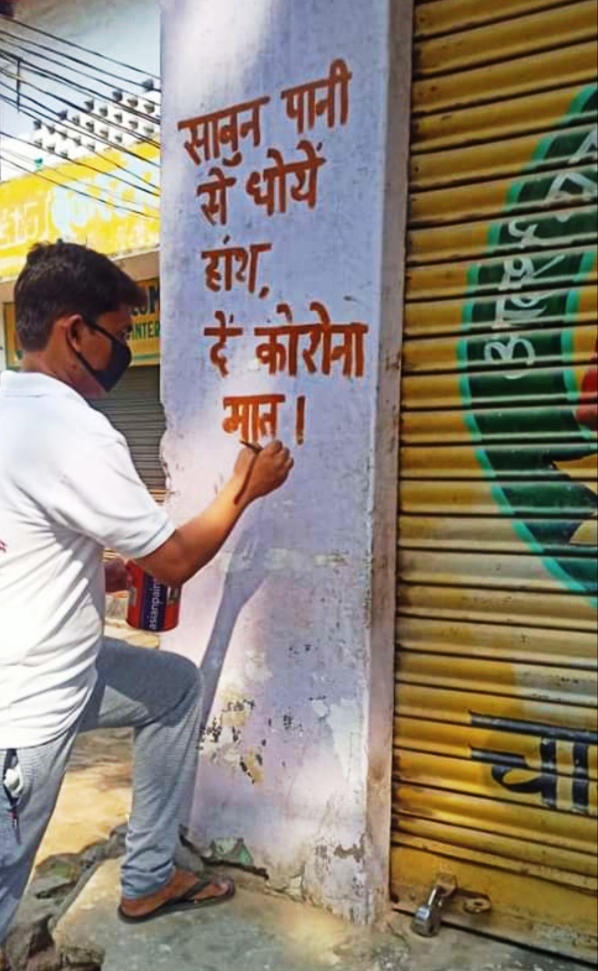 साबुन पानी
से धोयें
हांथ,
दें कोरोना
मात।
asianpaints
चा